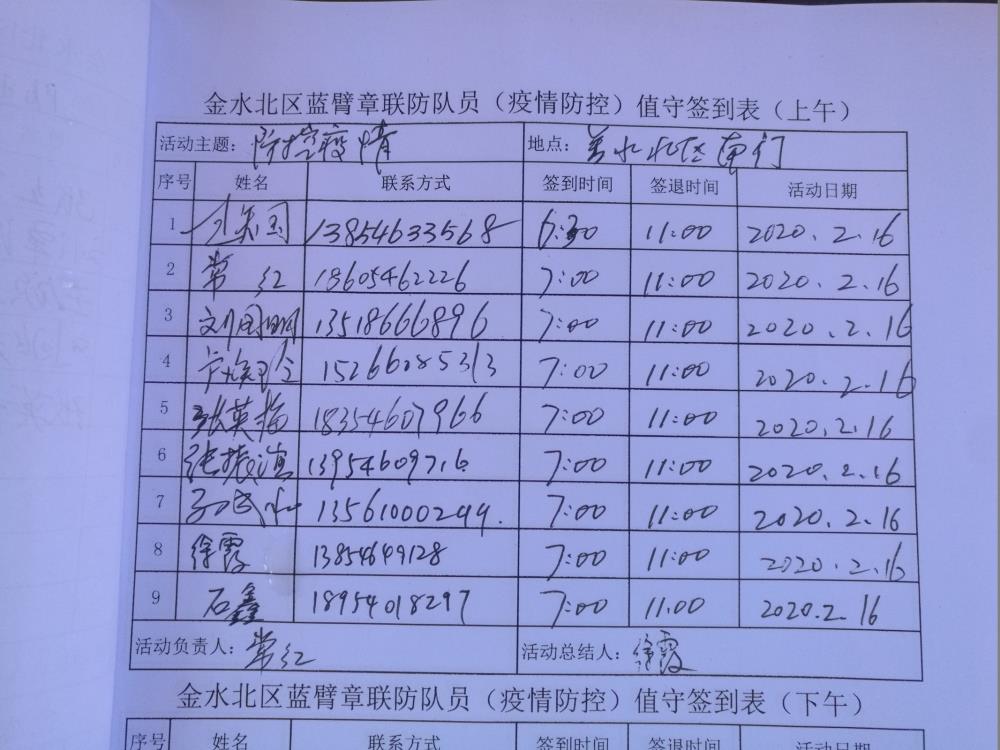 金水北区蓝臂章联防队员（疫情防控）值守签到表（上午）
活动主题：防控疫情 地点：金水北区南门
序号 姓名 联系方式 签到时间 签退时间 活动日期
1 13854633568 6:30 11:00 2020.2.16
2 常红 18605462226 7:00 11:00 2020.2.16
3 刘国明 13518666896 7:00 11:00 2020.2.16
4 15266085313 7:00 11:00 2020.2.16
5 张英梅 18354607966 7:00 11:00 2020.2.16
6 张振滨 13954609716 7:00 11:00 2020.2.16
7 13561000299. 7:00 11:00 2020.2.16
8 徐霞 13854649128 7:00 11:00 2020.2.16
9 石鑫 18954018297 7:00 11.00 2020.2.16
活动负责人：常红 活动总结人：徐霞
金水北区蓝臂章联防队员（疫情防控）值守签到表（下午）
序号 姓名 联系方式 签到时间 签退时间 活动日期